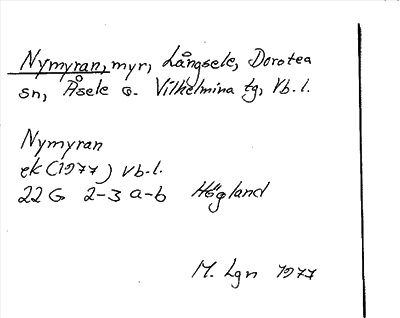 Nymyran, myr, Långsele, Dorotea
sn, Åsele o. Vilhelmina tg, Vb.l.
Nymyran
ek (1977) Vb.l.
22 G 2-3 a-b Högland
M. Lgn 1977